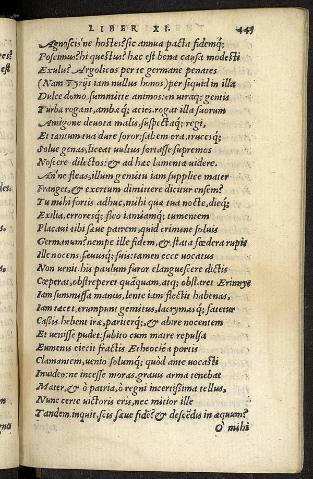 LIBER XI.
Agnoscis'ne hostes? sic annua pacta fidemq;
Poscimus? hi questus? hæc est bona causa modesti
Exulis? Argolicos per te germane penates
(Nam Tyrijs iam nullus honos) per siquid in illa
Dulce domo, summitte animos: en utraq; gentis
Turba rogant, ambæq; acies. rogat illa suorum
Antigone deuota malis, suspectaq; regi,
Et tantum tua dure soror: saltem ora, truces q;
Solue genas, liceat uultus fortasse supremos
Noscere dilectos: & ad hæc lamenta uidere.
An'ne fleas, illum gemitu iam supplice mater
Franget, & exertum dimittere dicitur ensem?
Tu mihi fortis adhuc, mihi qua tua nocte, dieq;
Exilia, erroresq; fleo iamiamq; tumentem
Placaui tibi sæue patrem, quid crimine soluis
Germanum? nempe ille fidem, & stata fœdera rupit
Ille nocens, sæuusq; suis: tamen ecce uocatus
Non uenit. his paulum furor elanguescere dictis
Cœperat, obstreperet quāquam, atq; obstaret Erinnys
Iam summissa manus, lente iam flectit habenas,
Iam tacet, erumpunt gemitus, lacrymasq; fatetur
Cassis. hebent iræ, pariterq;, & abire nocentem
Et uenisse pudet: subito cum matre repulsa
Eumenis eiecit fractis Etheoclēa portis
Clamantem, uenio solumq; quòd ante uocasti
Inuideo: ne incesse moras. grauis arma tenebat
Mater, & ò patria, ò regni incertissima tellus,
Nunc certe uictoris eris, nec mitior ille
Tandem. inquit. scis sæue fidē? & descēdis in æquum?
O mihi